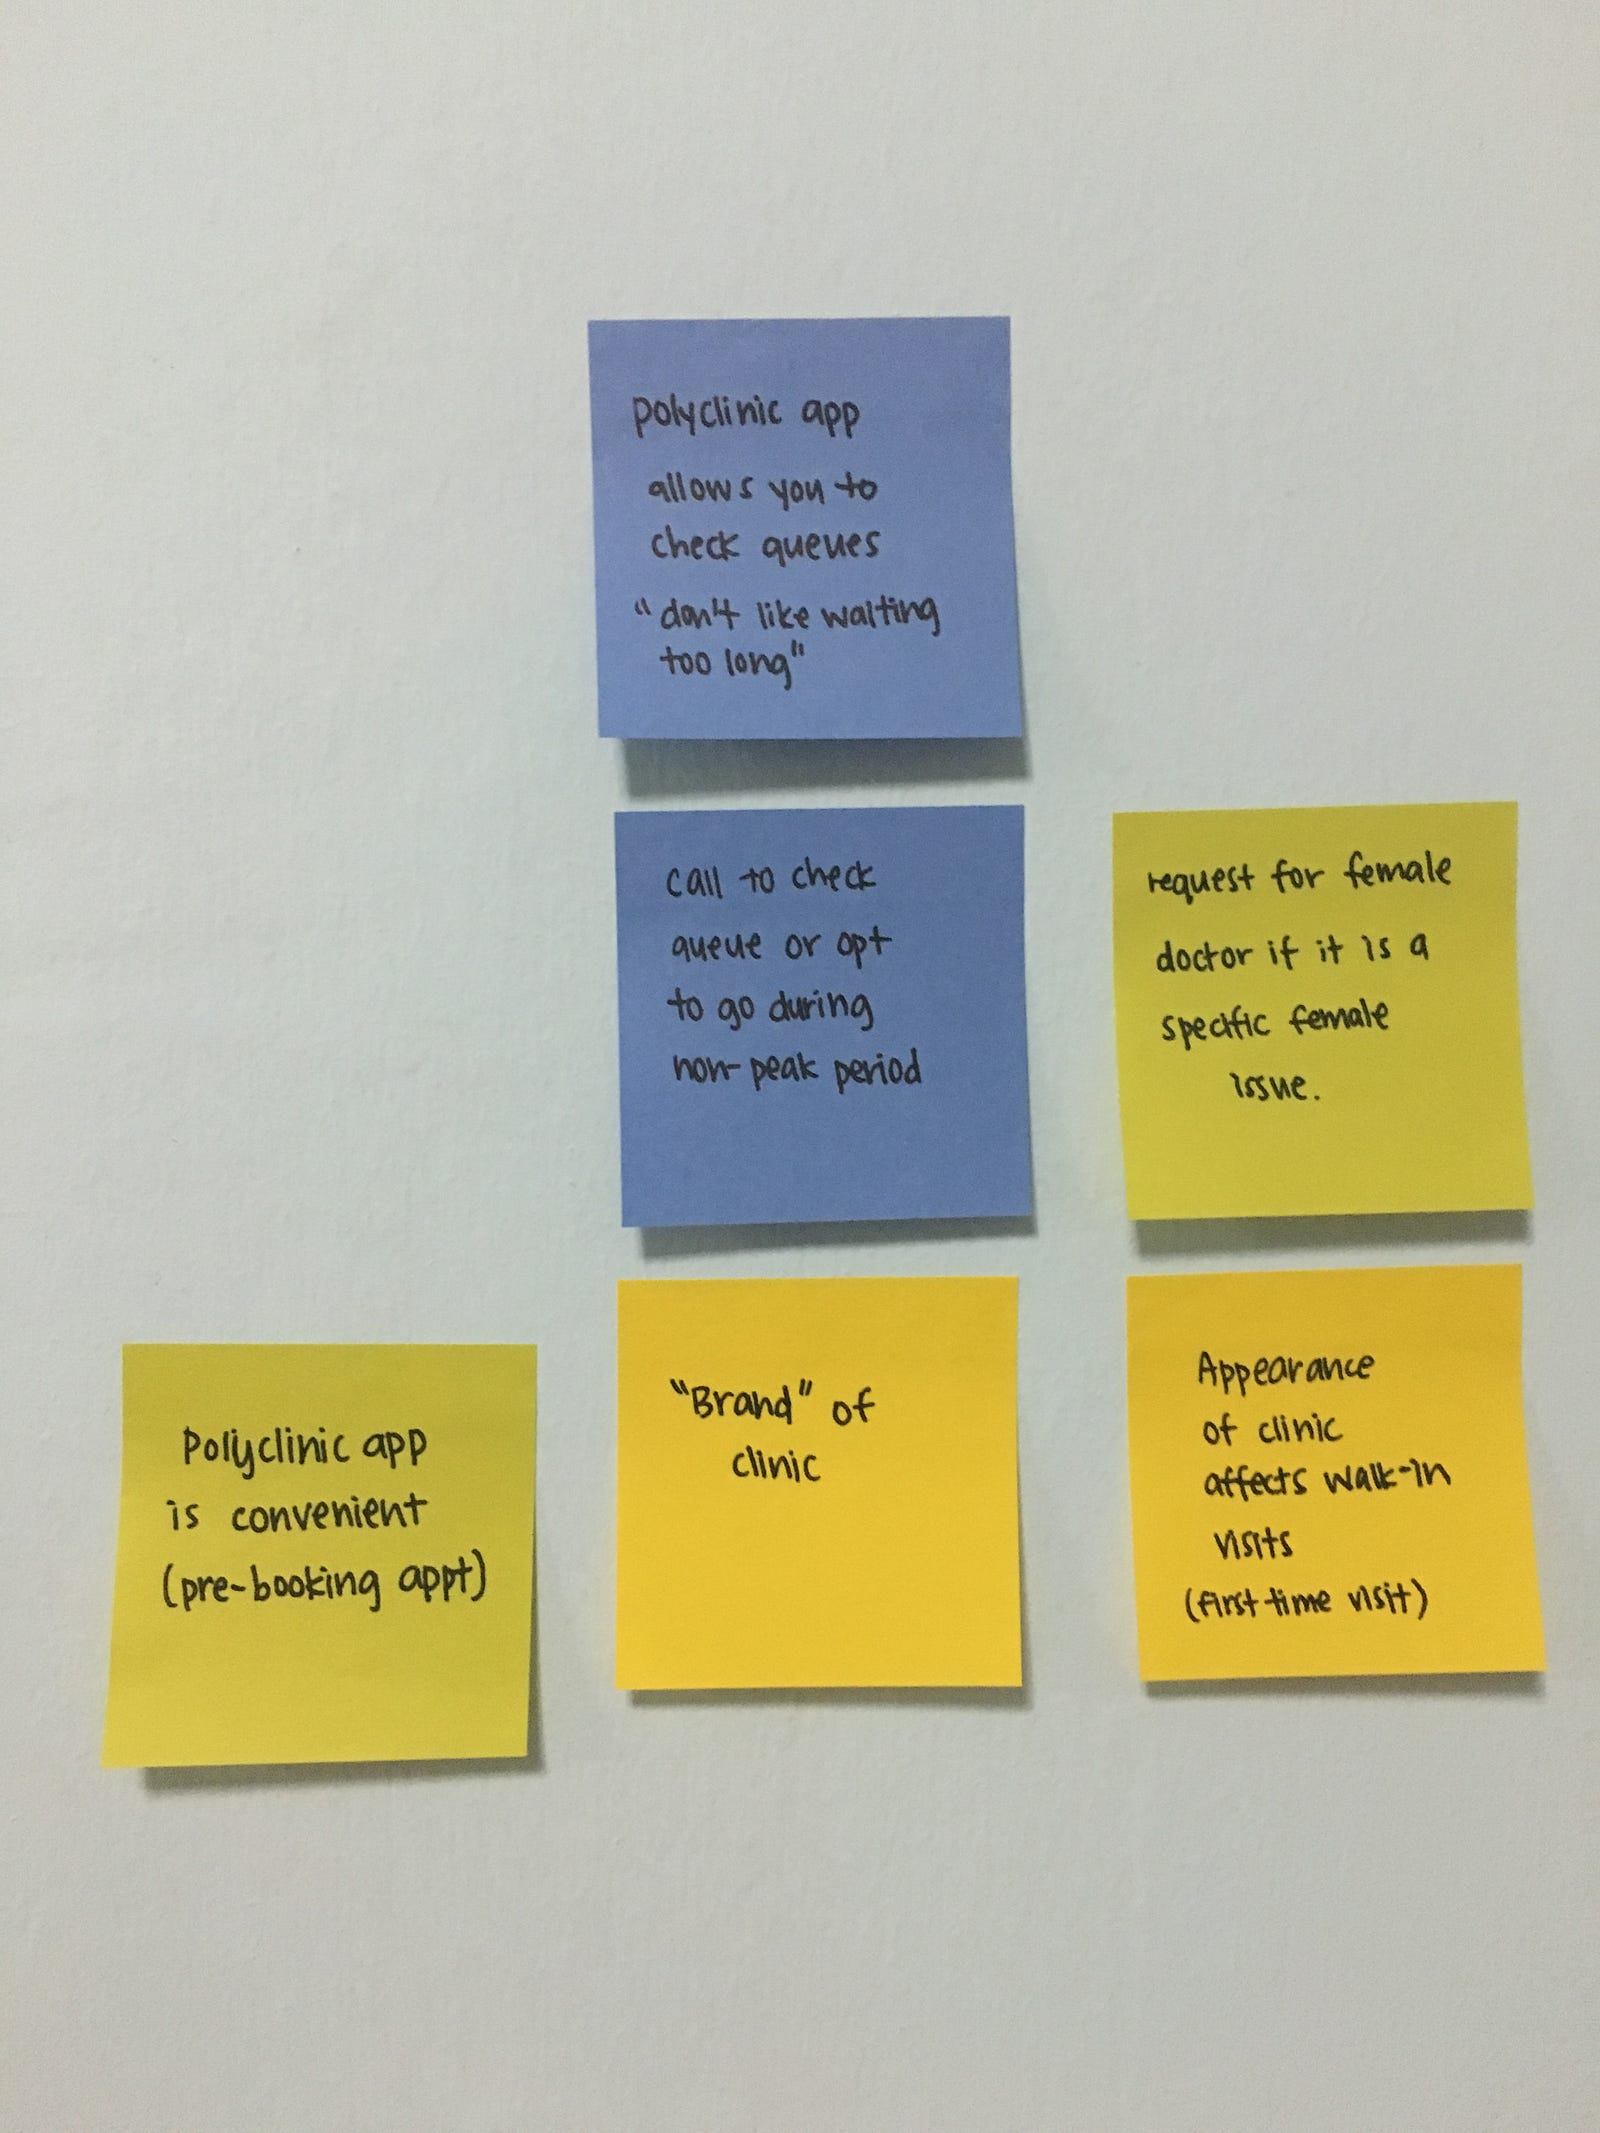 polyclinic app
allows you to
check queues
"don't like waiting
too long"
call to check
queue or opt
to go during
non-peak period
request for female
doctor if it is a
specific female
issue.
Polyclinic app
is convenient
(pre-booking appt)
"Brand" of
clinic
Appearance
of clinic
affects walk-in
visits
(first-time visit)